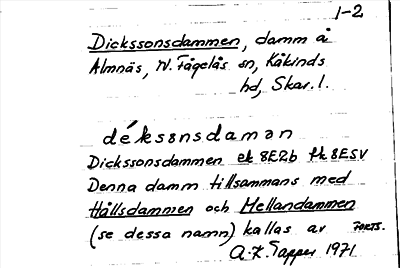 1-2
Dickssonsdammen, damm å
Almnäs, N. Fågelås sn, Kåkinds
hd, Skar. l.
dékssnsdamən
Dickssonsdammen ek 8E2b fk 8ESV
Denna damm tillsammans med
Hållsdammen och Mellandammen
(se dessa namn) kallas av FORTS.
A. K. Tapper 1971